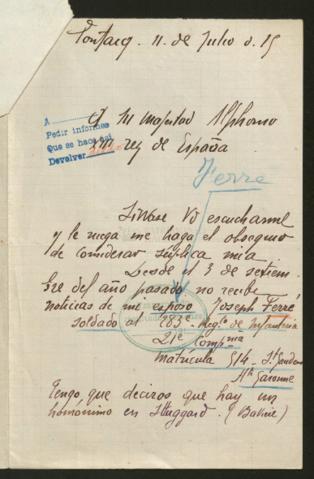 Pontacq. 11. de Julio d. 15
A
Pedir informes
Que se hace así
Devolver
A Su Majestad Alphonso
XIII rey de España
Ferré
Sírvase V escucharme
y le ruega me haga el obsequio
de considerar súplica mía
Desde el 3 de setiem
bre del año pasado no recibe
noticias de mi esposo Joseph Ferré
soldado al 283e Regto de Infanteria
21e Compnia
Matricula 914. St Gaudens
Hte Garonne
Tengo que deciros que hay un
homónimo en Stuggard. (Baviere)